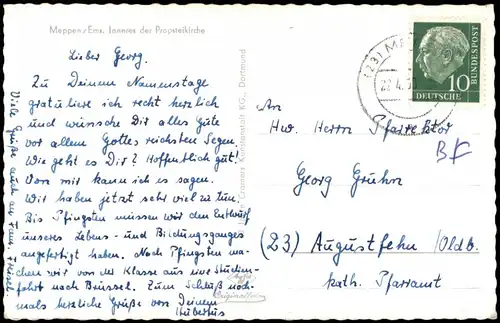 Meppen/Ems. Innres der Propsteikirche
Lieber Georg.
Zu Deinem Namenstage
gratuliere ich recht herzlich
und wünsche Dir alles Gute
vor allem Gottes reichsten Segen.
Wie geht es Dir? Hoffentlich gut!
Von mir kann ich es sagen.
Wir haben jetzt sehr viel zu tun.
Bis Pfingsten müssen wir den Entwurf
unseres Lebens- und Bildungsganges
angefertigt haben. Nach Pfingsten ma-
chen wir von der Klasse aus eine Studien-
fahrt nach Brüssel. Zum Schluß noch-
mals herzliche Grüße von Deinem
Hubertus
Viele Grüße auch an Fam.
Cramers Kunstanstalt KG., Dortmund
(23) ME
22.4.
10
DEUTSCHE
BUNDESPOST
An
Hw. Herrn Pfarrektor
Georg Gruhn
(23) Augustfehn /Oldb.
kath. Pfarramt